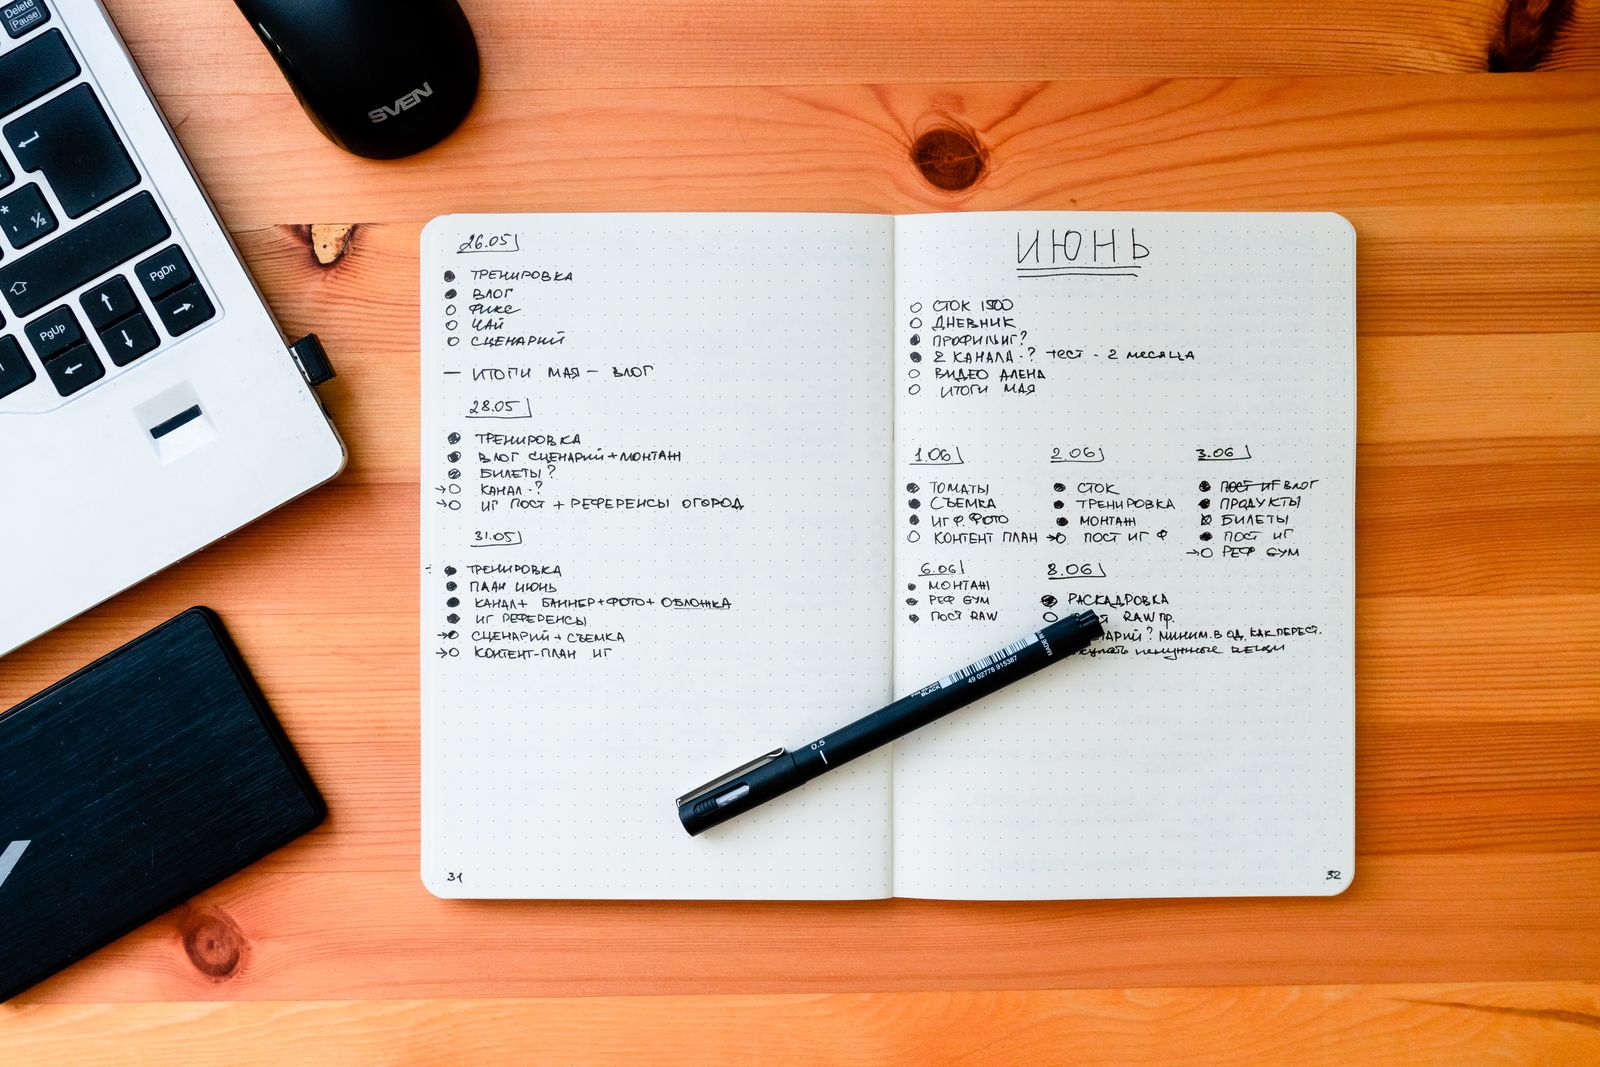 Delete
Pause
PgDn
PgUp
½
SVEN
26.05
ТРЕНИРОВКА
ВЛОГ
ФИКС
ЧАЙ
СЦЕНАРИЙ
— ИТОГИ МАЯ — ВЛОГ
28.05
ТРЕНИРОВКА
ВЛОГ СЦЕНАРИЙ+МОНТАЖ
БИЛЕТЫ?
КАНАЛ-?
ИГ ПОСТ + РЕФЕРЕНСЫ ОГОРОД
31.05
ТРЕНИРОВКА
ПЛАН ИЮНЬ
КАНАЛ+ БАННЕР+ФОТО+ ОБЛОЖКА
ИГ РЕФЕРЕНСЫ
СЦЕНАРИЙ+СЪЕМКА
КОНТЕНТ-ПЛАН ИГ
31
ИЮНЬ
СТОК 1500
ДНЕВНИК
ПРОФИЛЬ ИГ?
2 КАНАЛА-? тест - 2 месяца
ВИДЕО АЛЕНА
ИТОГИ МАЯ
1.06
ТОМАТЫ
СЪЕМКА
ИГ Ф. ФОТО
КОНТЕНТ ПЛАН
2.06
СТОК
ТРЕНИРОВКА
МОНТАЖ
ПОСТ ИГ Ф
3.06
ПОСТ ИГ ВЛОГ
ПРОДУКТЫ
БИЛЕТЫ
ПОСТ ИГ
РЕФ GYM
6.06
МОНТАЖ
РЕФ GYM
ПОСТ RAW
8.06
РАСКАДРОВКА
RAW пр.
? МИНИМ. В ОД. КАК ПЕРЕСТ.
ненужные вещи
32
0.5
BLACK
49 02778 915387